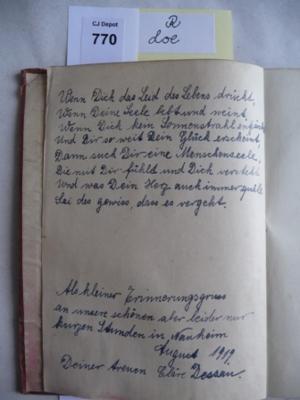 CJ Depot
770
R
loe
Wenn Dich das Leid des Lebens drückt,
Wenn Deine Seele bebt und weint,
Wenn Dich kein Sonnenstrahl
Und Dir so weit Dein Glück erscheint,
Dann such Dir eine Menschenseele,
Die mit Dir fühlt und Dich versteht
Und was Dein Herz auch immer quäle
Sei des gewiss, dass es vergeht.
Als kleiner Erinnerungsgruss
an unsere schönen aber leider nur
kurzen Stunden in Nauheim
August 1919.
Deiner treuen Cläre Dessau.